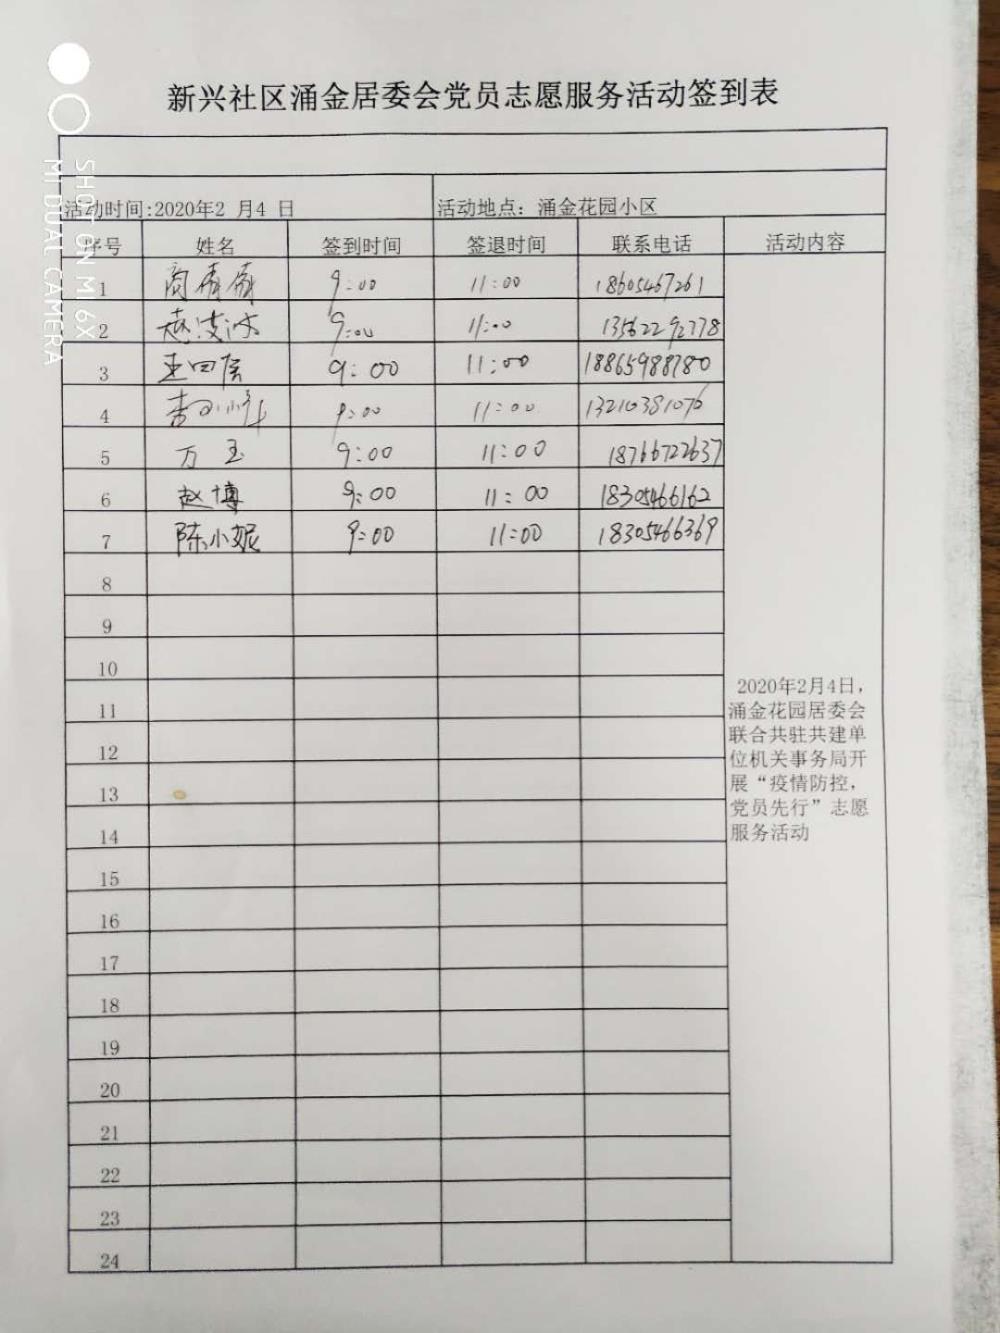 新兴社区涌金居委会党员志愿服务活动签到表
活动时间:2020年2 月4 日 活动地点：涌金花园小区
序号 姓名 签到时间 签退时间 联系电话 活动内容
1 9:00 11:00 18605467261
2 9:00 11:00 13562292778
3 9:00 11:00 18865988780
4 9:00 11:00 13210381076
5 万玉 9:00 11:00 18766722637
6 赵博 9:00 11:00 18305466162
7 陈小妮 9:00 11:00 18305466369
8
9
10
11
12
13
14
15
16
17
18
19
20
21
22
23
24
2020年2月4日，
涌金花园居委会
联合共驻共建单
位机关事务局开
展“疫情防控，
党员先行”志愿
服务活动
SHOT ON MI 6X
MI DUAL CAMERA